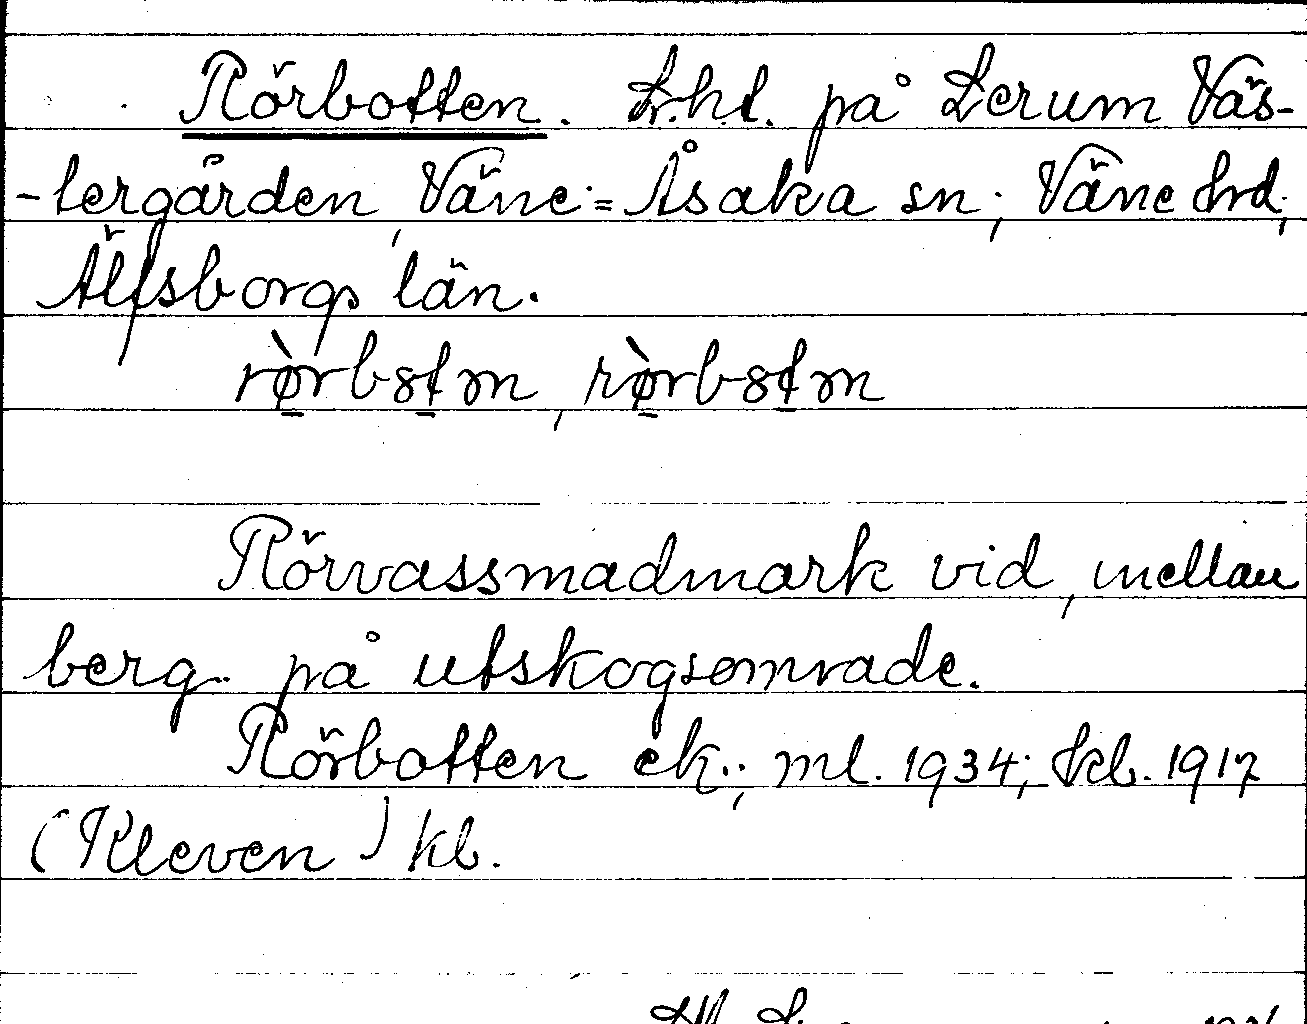 Rörbotten. Tr.h.t. på Lerum Väs-
-tergården, Väne-Åsaka sn; Väne hd;
Älfsborgs län.
rørbstm, rørbstm
Rörvassmadmark vid, mellan
berg på utskogsområde.
Rörbotten ek.; ml. 1934; kb. 1917
(Kleven) kl.